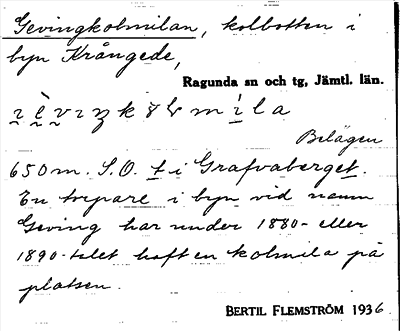 Gevingkolmilan, kolbotten i
byn Krångede,
Ragunda sn och tg, Jämtl. län.
Belägen
650 m. S.O. t i Grafvaberget.
En torpare i byn vid namn
Geving har under 1880- eller
1890-talet haft en kolmila på
platsen.
BERTIL FLEMSTRÖM 1936.